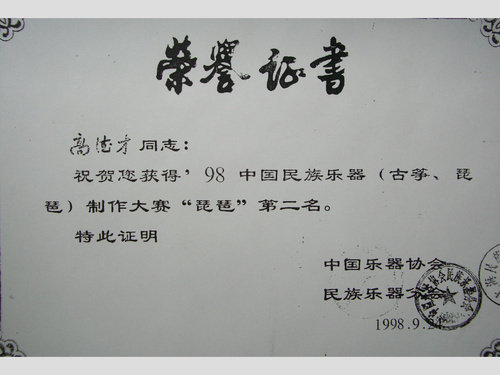 荣誉证书
高德才同志：
祝贺您获得’98中国民族乐器（古筝、琵
琶）制作大赛“琵琶”第二名。
特此证明
中国乐器协会
民族乐器分会
1998.9.2